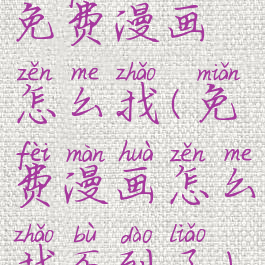 免费漫画
zěn me zhǎo miǎn
怎么找(免
fèi màn huà zěn me
费漫画怎么
zhǎo bù dào liǎo
找不到了)